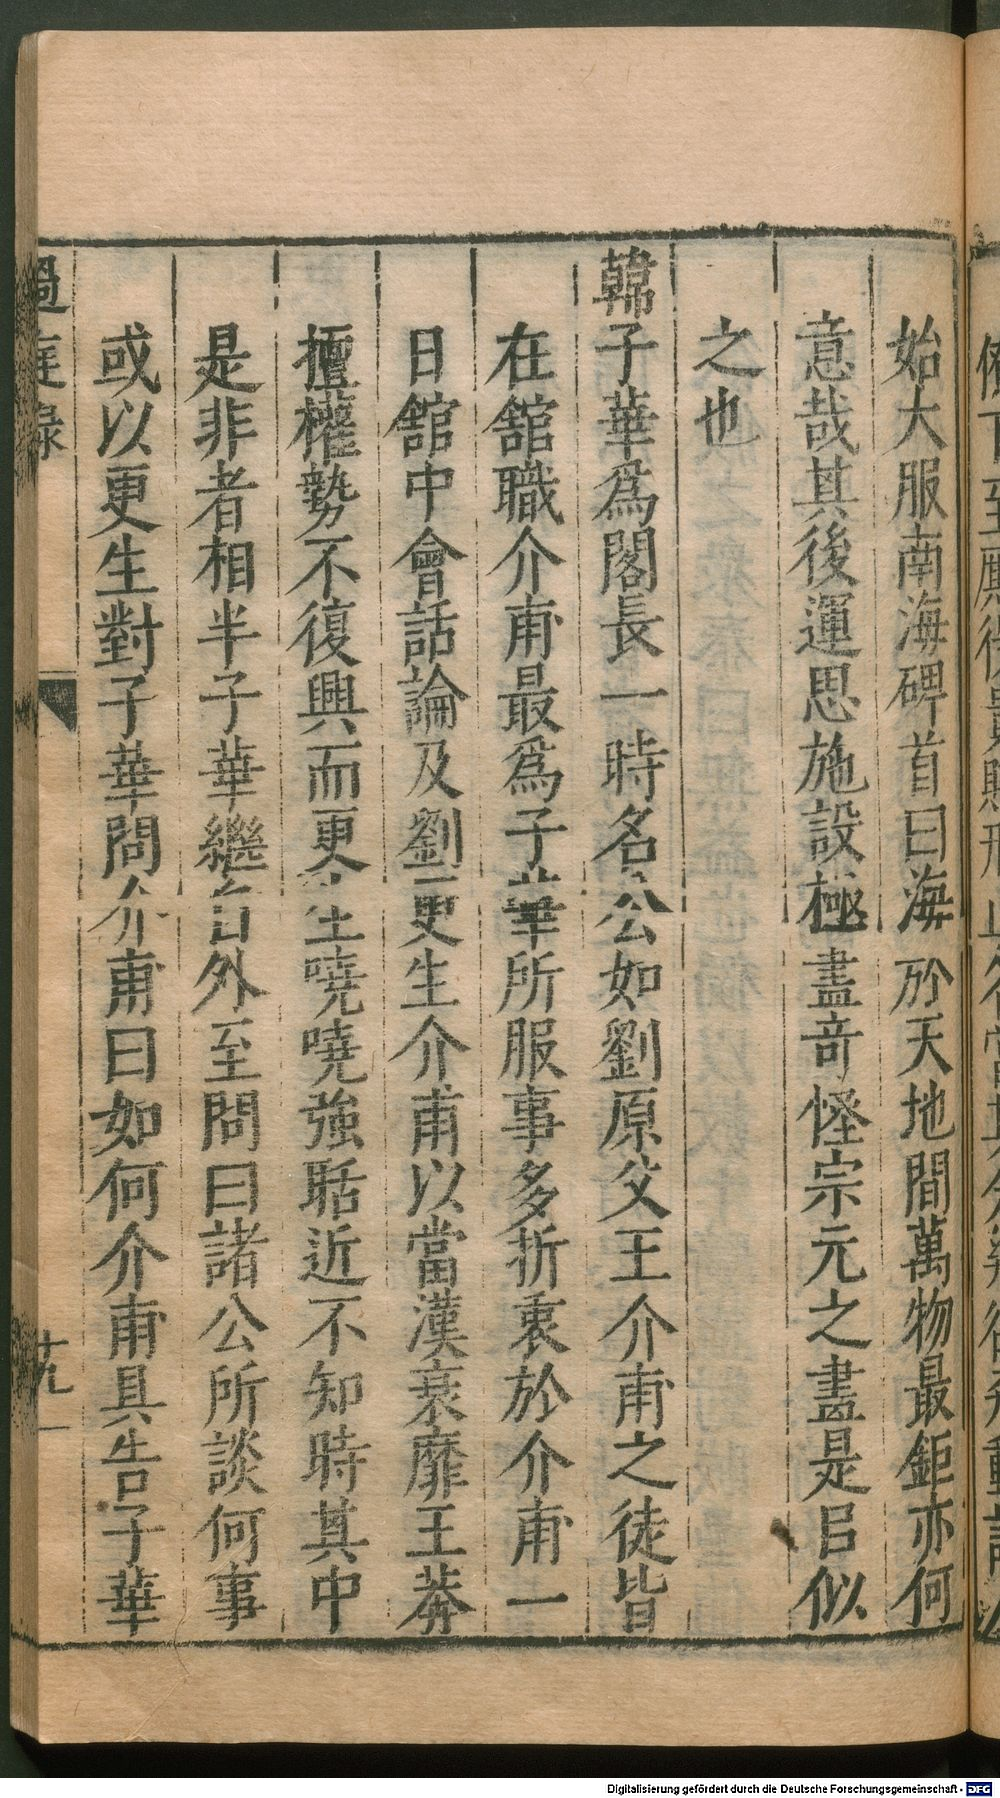 始大服南海碑首曰海於天地間萬物最鉅亦何
意哉其後運思施設極盡竒怪宗元之盡是㠯似
之也
韓子華爲閣長一時名公如劉原父王介甫之徒皆
在舘職介甫最爲子華所服事多折衷於介甫一
日舘中會話論及劉更生介甫以當漢衰靡王莽
擅權勢不復興而更生嘵嘵強聒近不知時其中
是非者相半子華繼自外至問曰諸公所談何事
或以更生對子華問介甫曰如何介甫具告子華
過庭錄
Digitalisierung gefördert durch die Deutsche Forschungsgemeinschaft - DFG